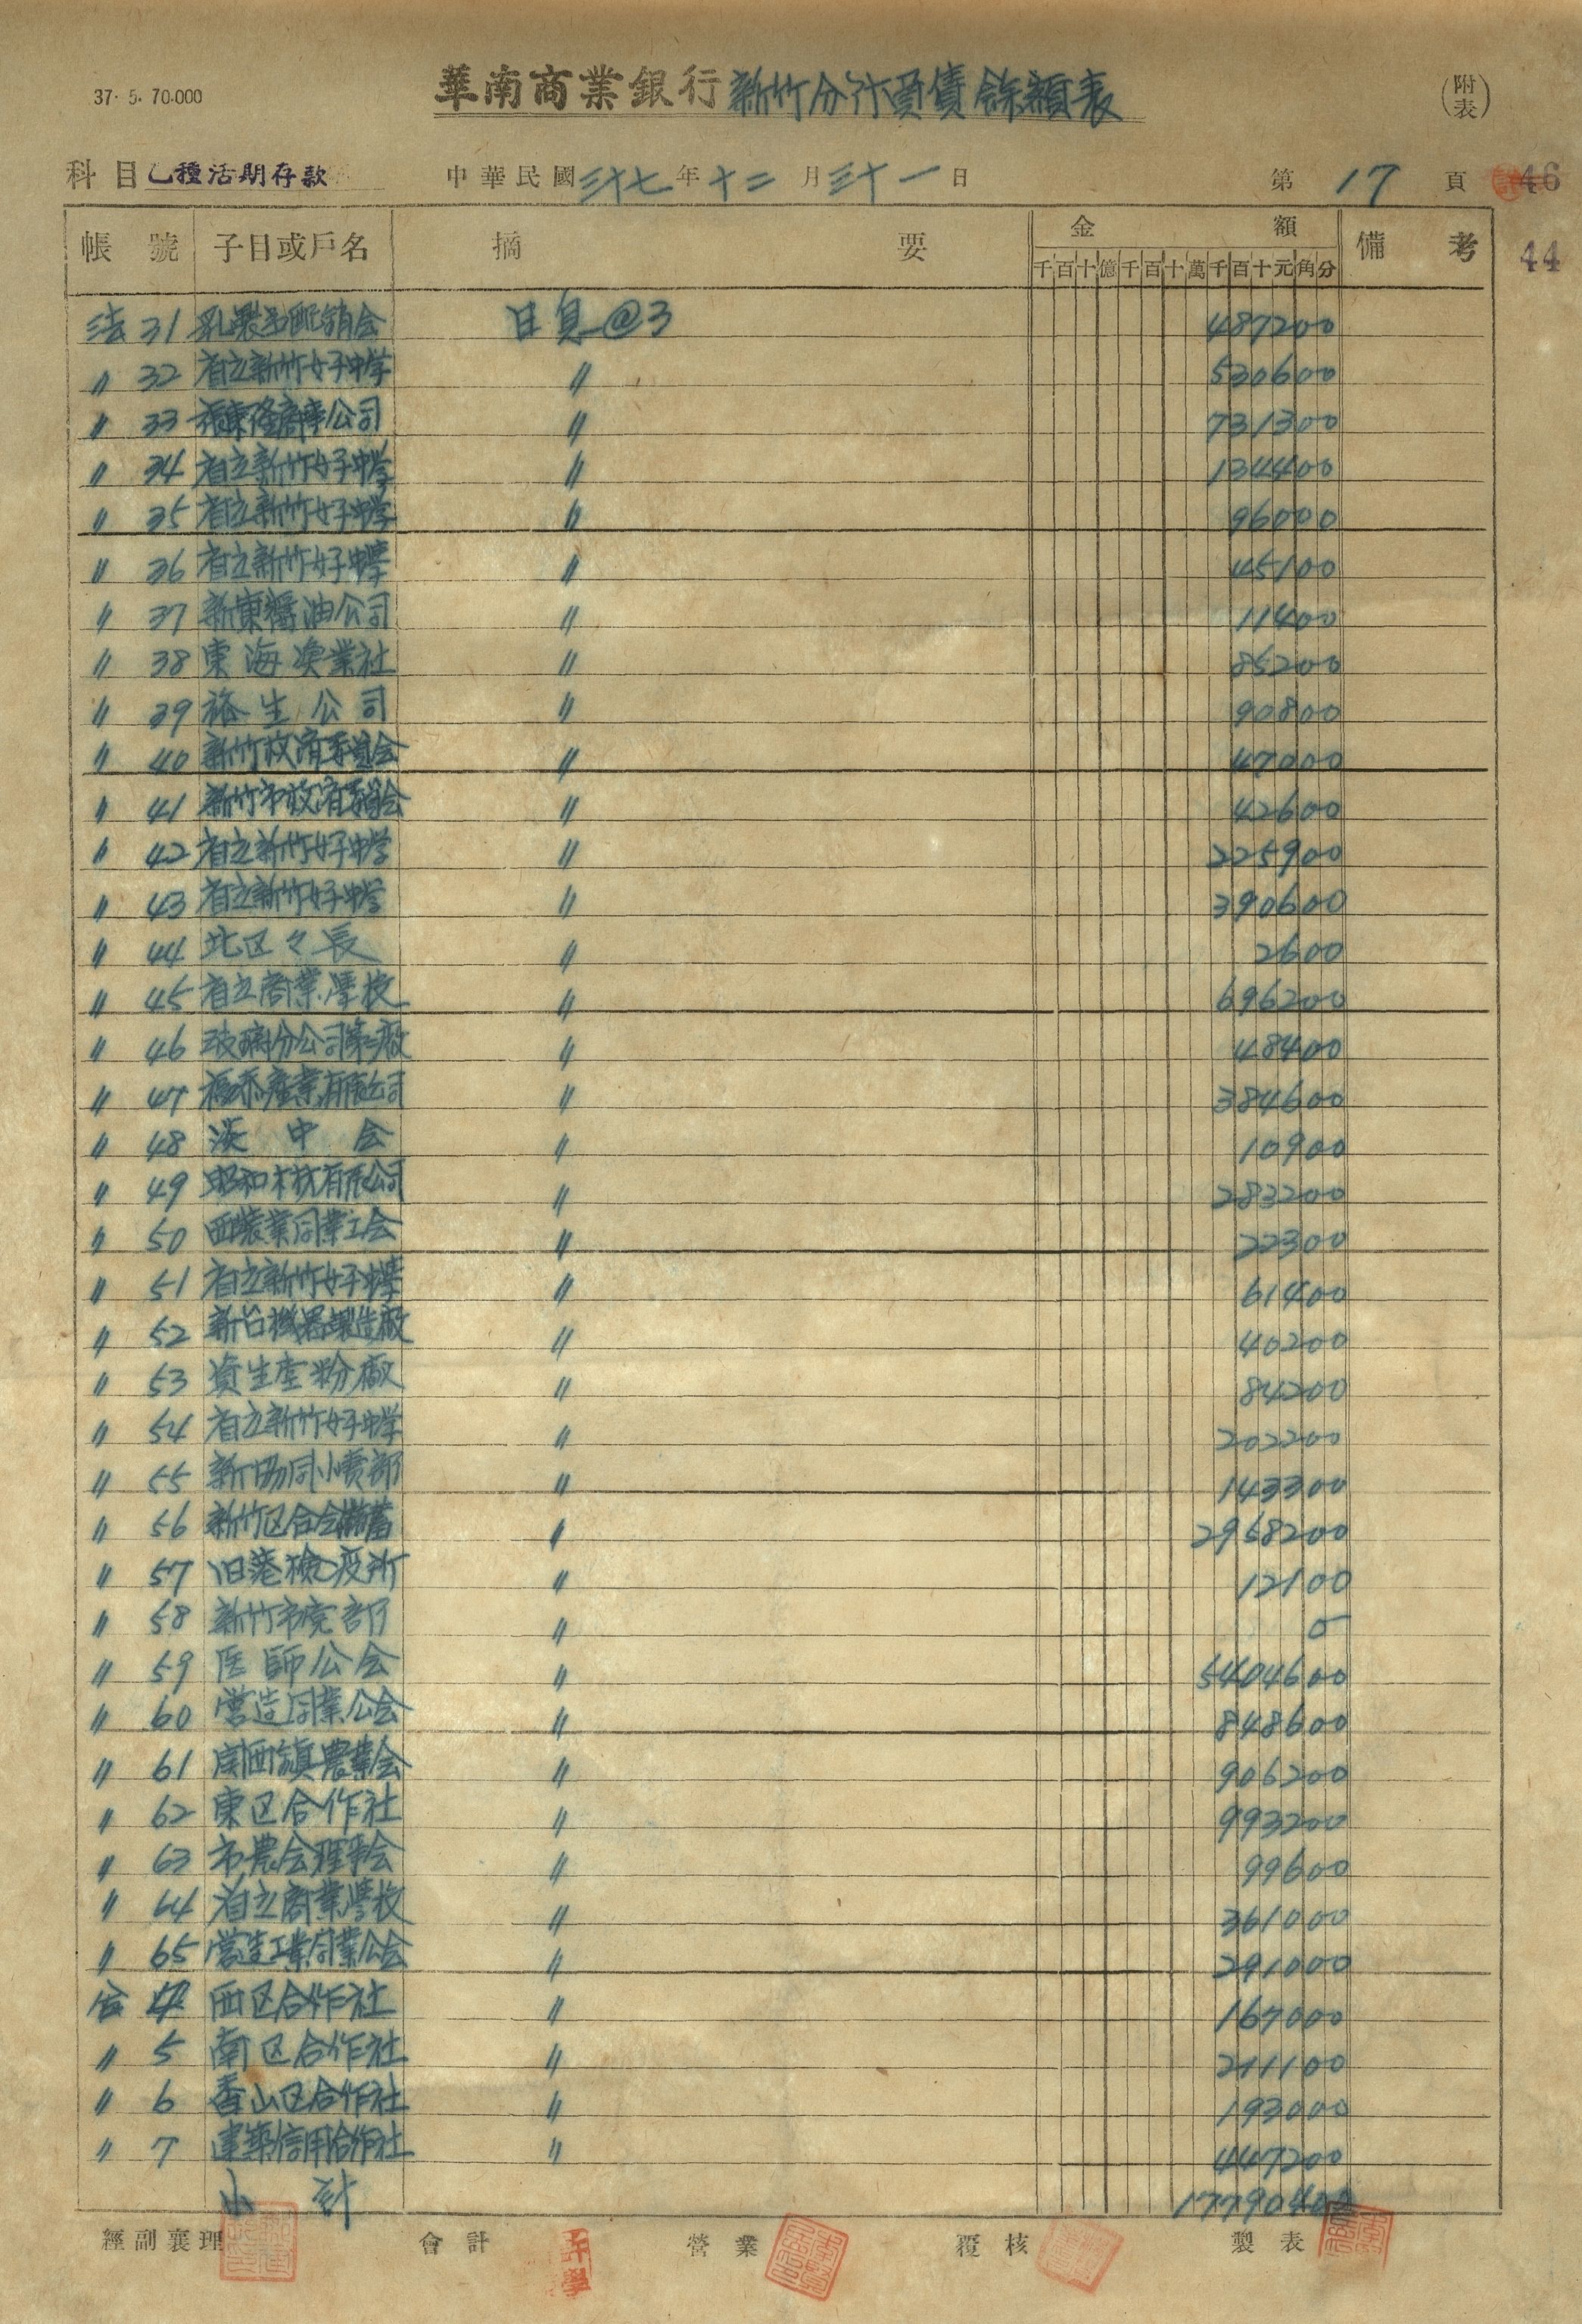 37. 5. 70.000
華南商業銀行新竹分行負債餘額表
(附表)
科目乙種活期存款 中華民國三十七年十二月三十一日 第17頁 46
44
帳號 子目或戶名 摘要 金額 備考
千百十億千百十萬千百十元角分
31 乳製品配銷会 日息@3 487200
〃 32 省立新竹女子中学 〃 530600
〃 33 公司 〃 731300
〃 34 省立新竹女子中学 〃 134400
〃 35 省立新竹女子中学 〃 96000
〃 36 省立新竹女子中學 〃 45100
〃 37 新東醬油公司 〃 11400
〃 38 東海漁業社 〃 85200
〃 39 裕生公司 〃 90800
〃 40 新竹救濟委員会 〃 47000
〃 41 新竹市救濟委員会 〃 42600
〃 42 省立新竹女子中学 〃 225900
〃 43 省立新竹女子中学 〃 390600
〃 44 北区々長 〃 2600
〃 45 省立商業學校 〃 696200
〃 46 玻璃分公司第二廠 〃 48400
〃 47 產業有限公司 〃 384600
〃 48 中会 〃 10900
〃 49 昭和木材有限公司 〃 283200
〃 50 西裝業同業工会 〃 22300
〃 51 省立新竹女子中學 〃 61400
〃 52 新台機器製造廠 〃 40200
〃 53 資生堂粉廠 〃 84200
〃 54 省立新竹女子中学 〃 202200
〃 55 新協同小賣部 〃 143300
〃 56 新竹区合会儲蓄 〃 2958200
〃 57 旧港檢疫所 〃 12100
〃 58 新竹市党部 〃 0
〃 59 医師公会 〃 5404600
〃 60 営造同業公会 〃 848600
〃 61 関西鎮農業会 〃 906200
〃 62 東区合作社 〃 993200
〃 63 市農会理事会 〃 99600
〃 64 省立商業學校 〃 361000
〃 65 営造工業同業公会 〃 291000
合 4 西区合作社 〃 167000
〃 5 南区合作社 〃 211100
〃 6 香山区合作社 〃 193000
〃 7 建築信用合作社 〃 447200
小計 17790400
經副襄理 會計 營業 覆核 製表